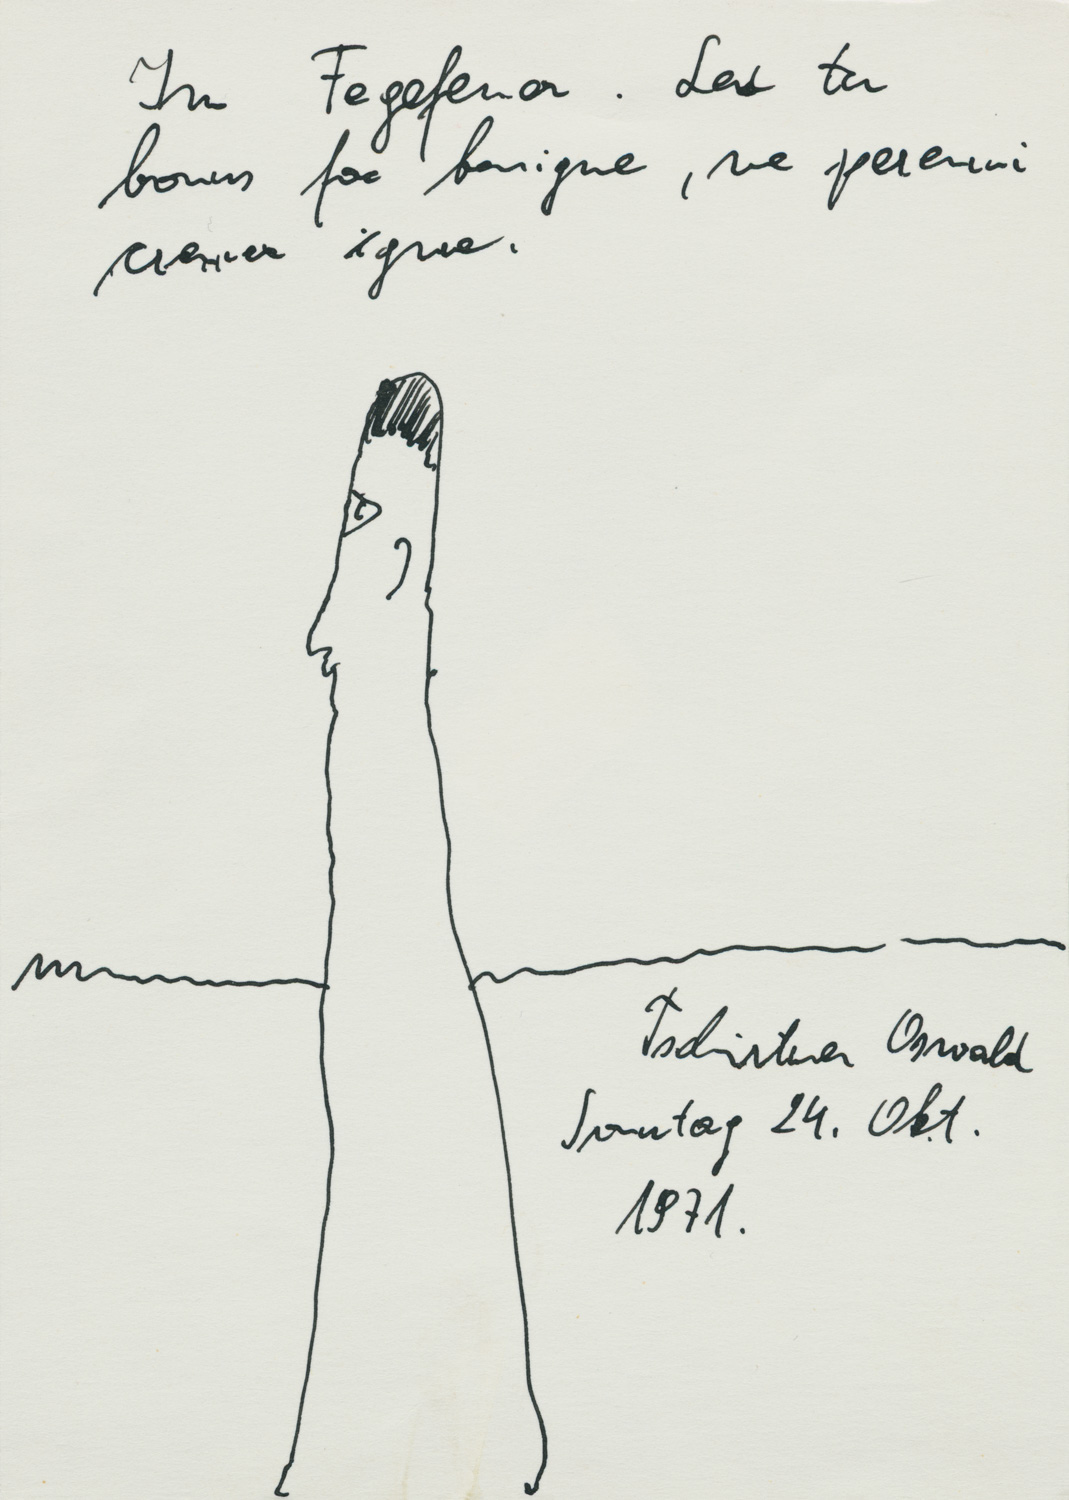 Im Fegefeuer. Sed tu
bonus fac benigne, ne perenni
cremer igne.
Tschirtner Oswald
Sonntag 24. Okt.
1971.